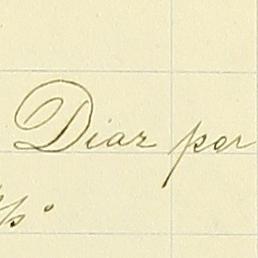 Diaz por